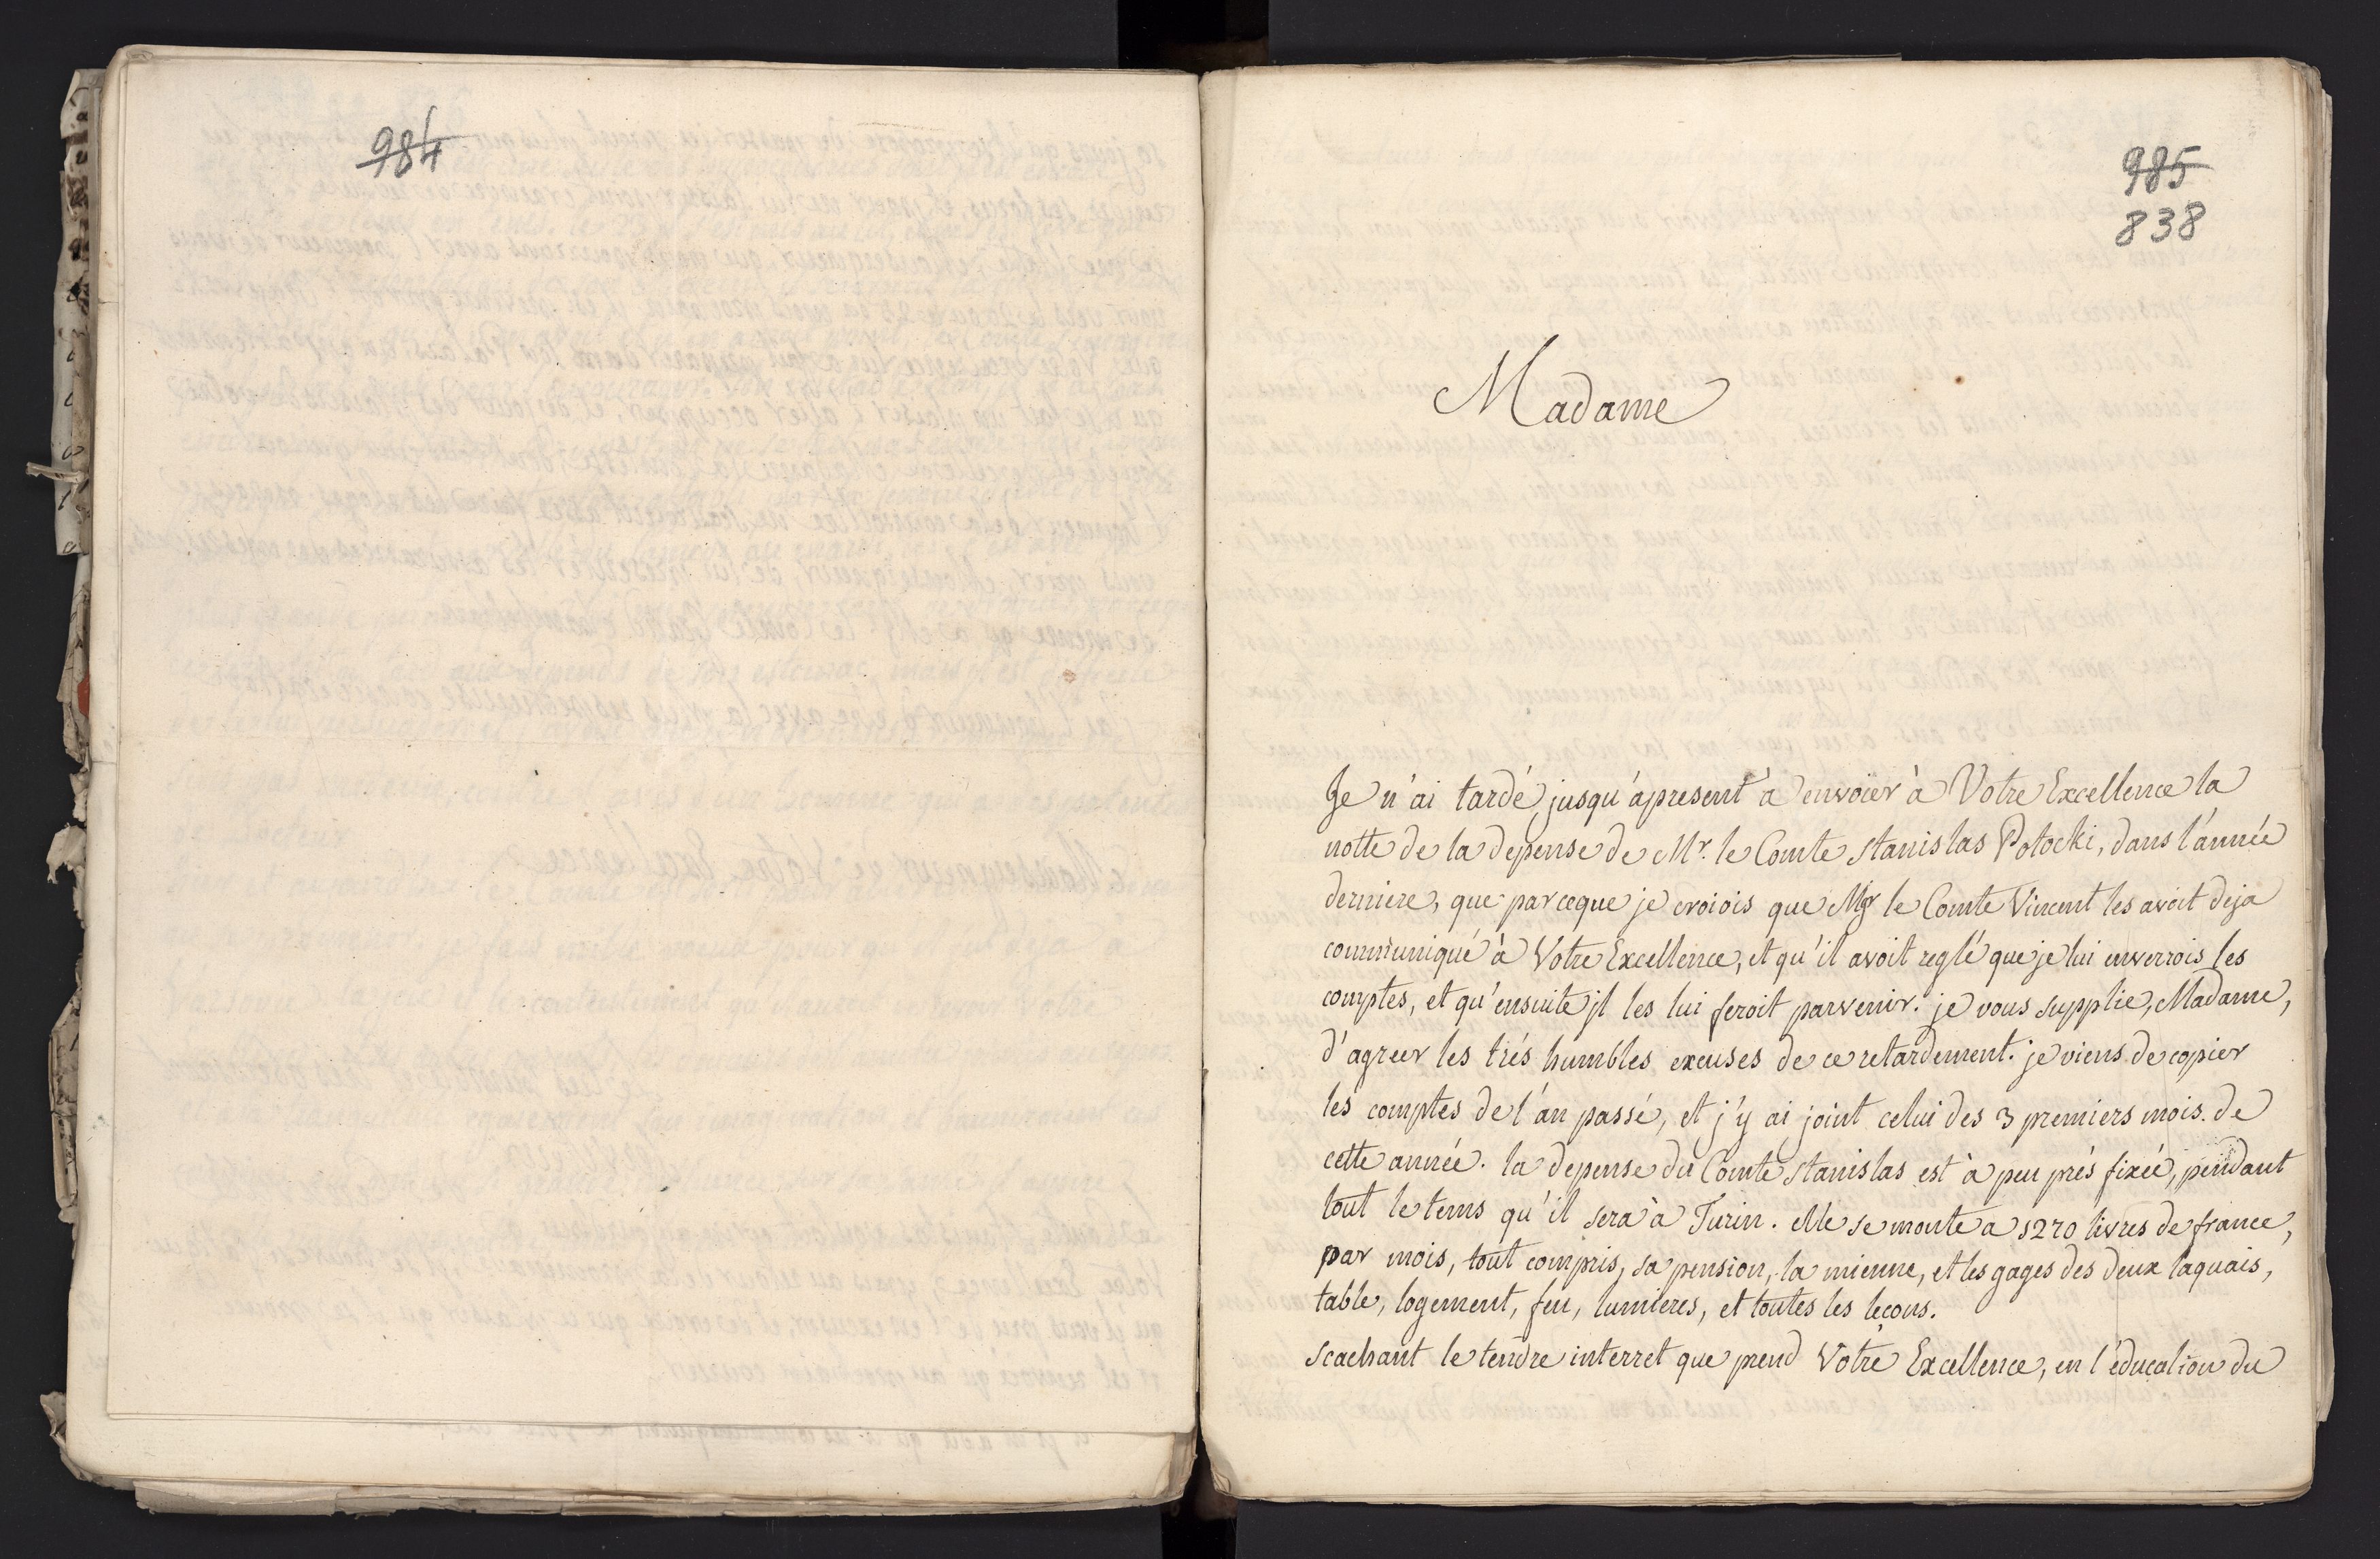 984
985
838
Madame
Je n'ai tardé, jusqu'àpresent à envoïer à Votre Excellence la
notte de la depense de Mr. le Comte Stanislas Potocki, dans l'année
derniere, que parceque je croiois que Mgr le Comte Vincent les avoit deja
communiqué à Votre Excellence, et qu'il avoit reglé que je lui enverrois les
comptes, et qu'ensuite jl les lui feroit parvenir. je vous supplie, Madame,
d'agreer les trés humbles excuses de ce retardement. je viens de copier
les comptes de l'an passé, et j'y ai joint celui des 3 premiers mois de
cette année. la depense du Comte Stanislas est à peu prés fixée, pendant
tout le tems qu'il sera à Turin. elle se monte a 1270 livres de france,
par mois, tout compris, sa pension, la mienne, et les gages des deux laquais,
table, logement, feu, lumieres, et toutes les leçons.
Scachant le tendre interret que prend Votre Excellence, en l'éducation du